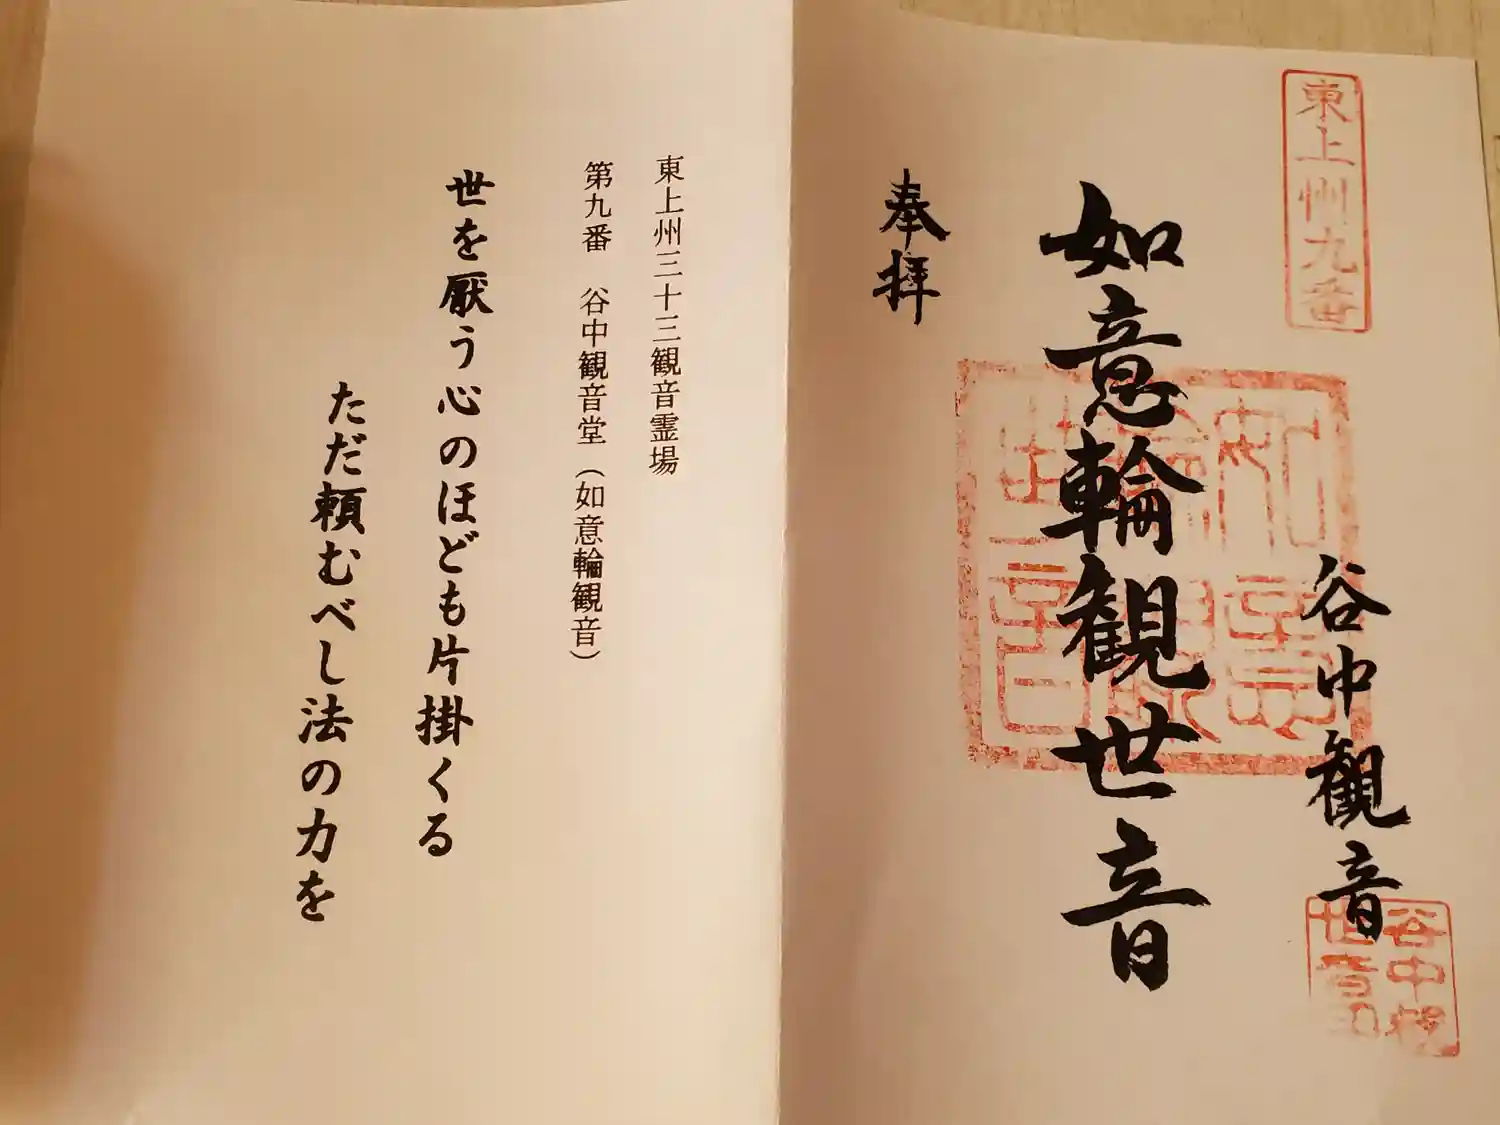 東上州九番
奉拝
如意輪観世音
谷中観音
如意輪観世音
谷中観世音
東上州三十三観音霊場
第九番　谷中観音堂（如意輪観音）
世を厭う心のほども片掛くる
ただ頼むべし法の力を